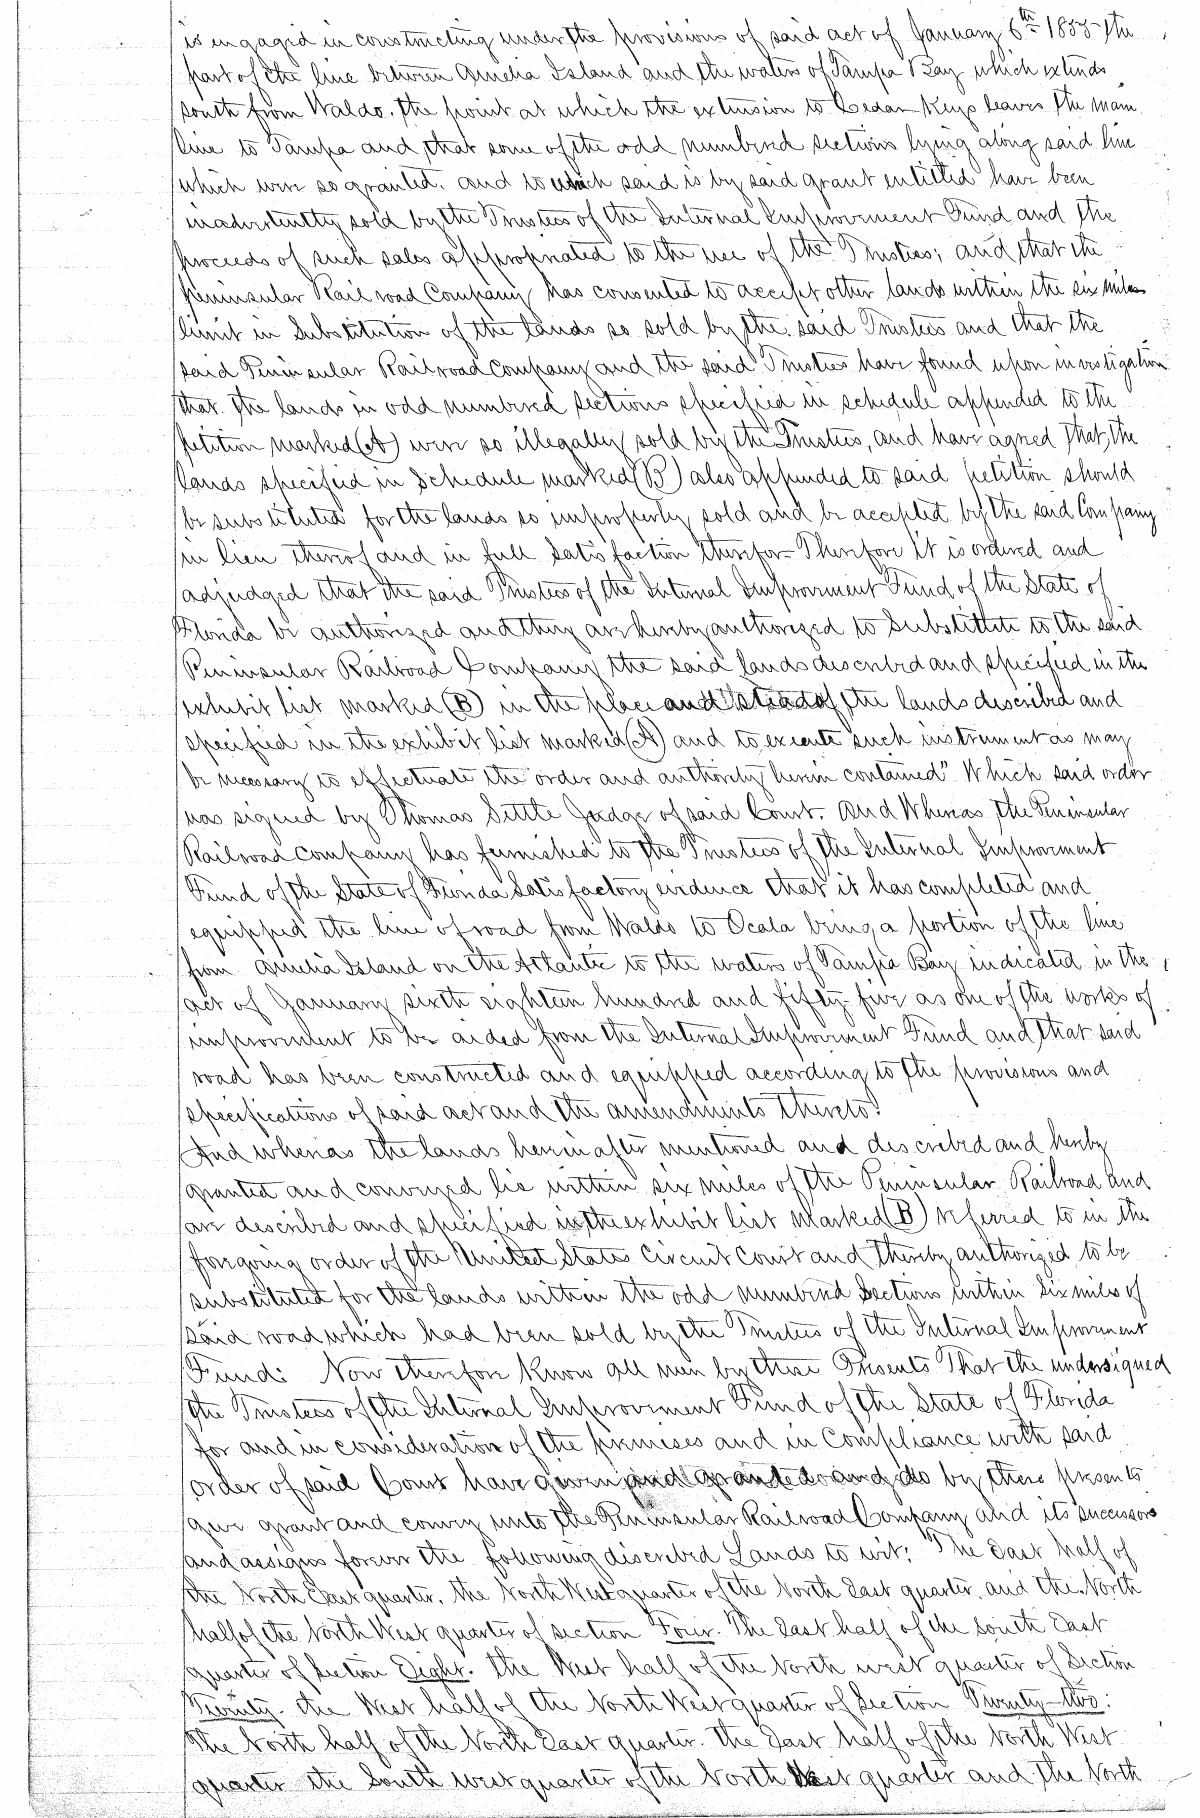 is engaged in constructing under the provisions of said act of January 6th 1855 the
part of the line between Amelia Island and the waters of Tampa Bay which extends
south from Waldo, the point at which the extension to Cedar Keys leaves the main
line to Tampa and that some of the odd numbered sections lying along said line
which were so granted, and to which said is by said grant entitled have been
inadvertently sold by the Trustees of the Internal Improvement Fund and the
proceeds of such sales appropriated to the use of the Trustees; and that the
Peninsular Rail road Company has consented to accept other lands within the six miles
limit in Substitution of the lands so sold by the said Trustees and that the
said Peninsular Railroad Company and the said Trustees have found upon investigation
that the lands in odd numbered sections specified in schedule appended to the
petition marked (A) were so illegally sold by the Trustees, and have agreed that the
lands specified in Schedule marked (B) also appended to said petition should
be substituted for the lands so improperly sold and be accepted by the said Company
in lieu thereof and in full Satisfaction therefor – Therefore it is ordered and
adjudged that the said Trustees of the Internal Improvement Fund of the State of
Florida be authorized and they are hereby authorized to Substitute to the said
Peninsular Railroad Company the said lands described and specified in the
exhibit list marked (B) in the place and stead of the lands described and
specified in the exhibit list marked (A) and to execute such instrument as may
be necessary to effectuate the order and authority herein contained" Which said order
was signed by Thomas Settle Judge of said Court. And Whereas the Peninsular
Railroad Company has furnished to the Trustees of the Internal Improvement
Fund of the State of Florida Satisfactory evidence that it has completed and
equipped the line of road from Waldo to Ocala being a portion of the line
from Amelia Island on the Atlantic to the waters of Tampa Bay indicated in the
act of January sixth eighteen hundred and fifty-five as one of the works of
improvement to be aided from the Internal Improvement Fund and that said
road has been constructed and equipped according to the provisions and
specifications of said act and the amendments thereto.
And whereas the lands herein after mentioned and described and hereby
granted and conveyed lie within six miles of the Peninsular Railroad and
are described and specified in the exhibit list marked (B) referred to in the
foregoing order of the United States Circuit Court and thereby authorized to be
substituted for the lands within the odd numbered Sections within Six miles of
said road which had been sold by the Trustees of the Internal Improvement
Fund: Now therefore Know all men by these Presents That the undersigned
the Trustees of the Internal Improvement Fund of the State of Florida
for and in consideration of the premises and in Compliance with said
order of said Court have given and granted and do by these presents
give grant and convey unto the Peninsular Railroad Company and its successors
and assigns forever the following described Lands to wit: The East half of
the North East quarter, the North West quarter of the North East quarter, and the North
half of the North West quarter of section Four. The East half of the South East
quarter of Section Eight. the West half of the North west quarter of Section
Twenty. the West half of the North West quarter of Section Twenty-two:
The North half of the North East quarter. the East half of the North West
quarter the South west quarter of the North West quarter and the North